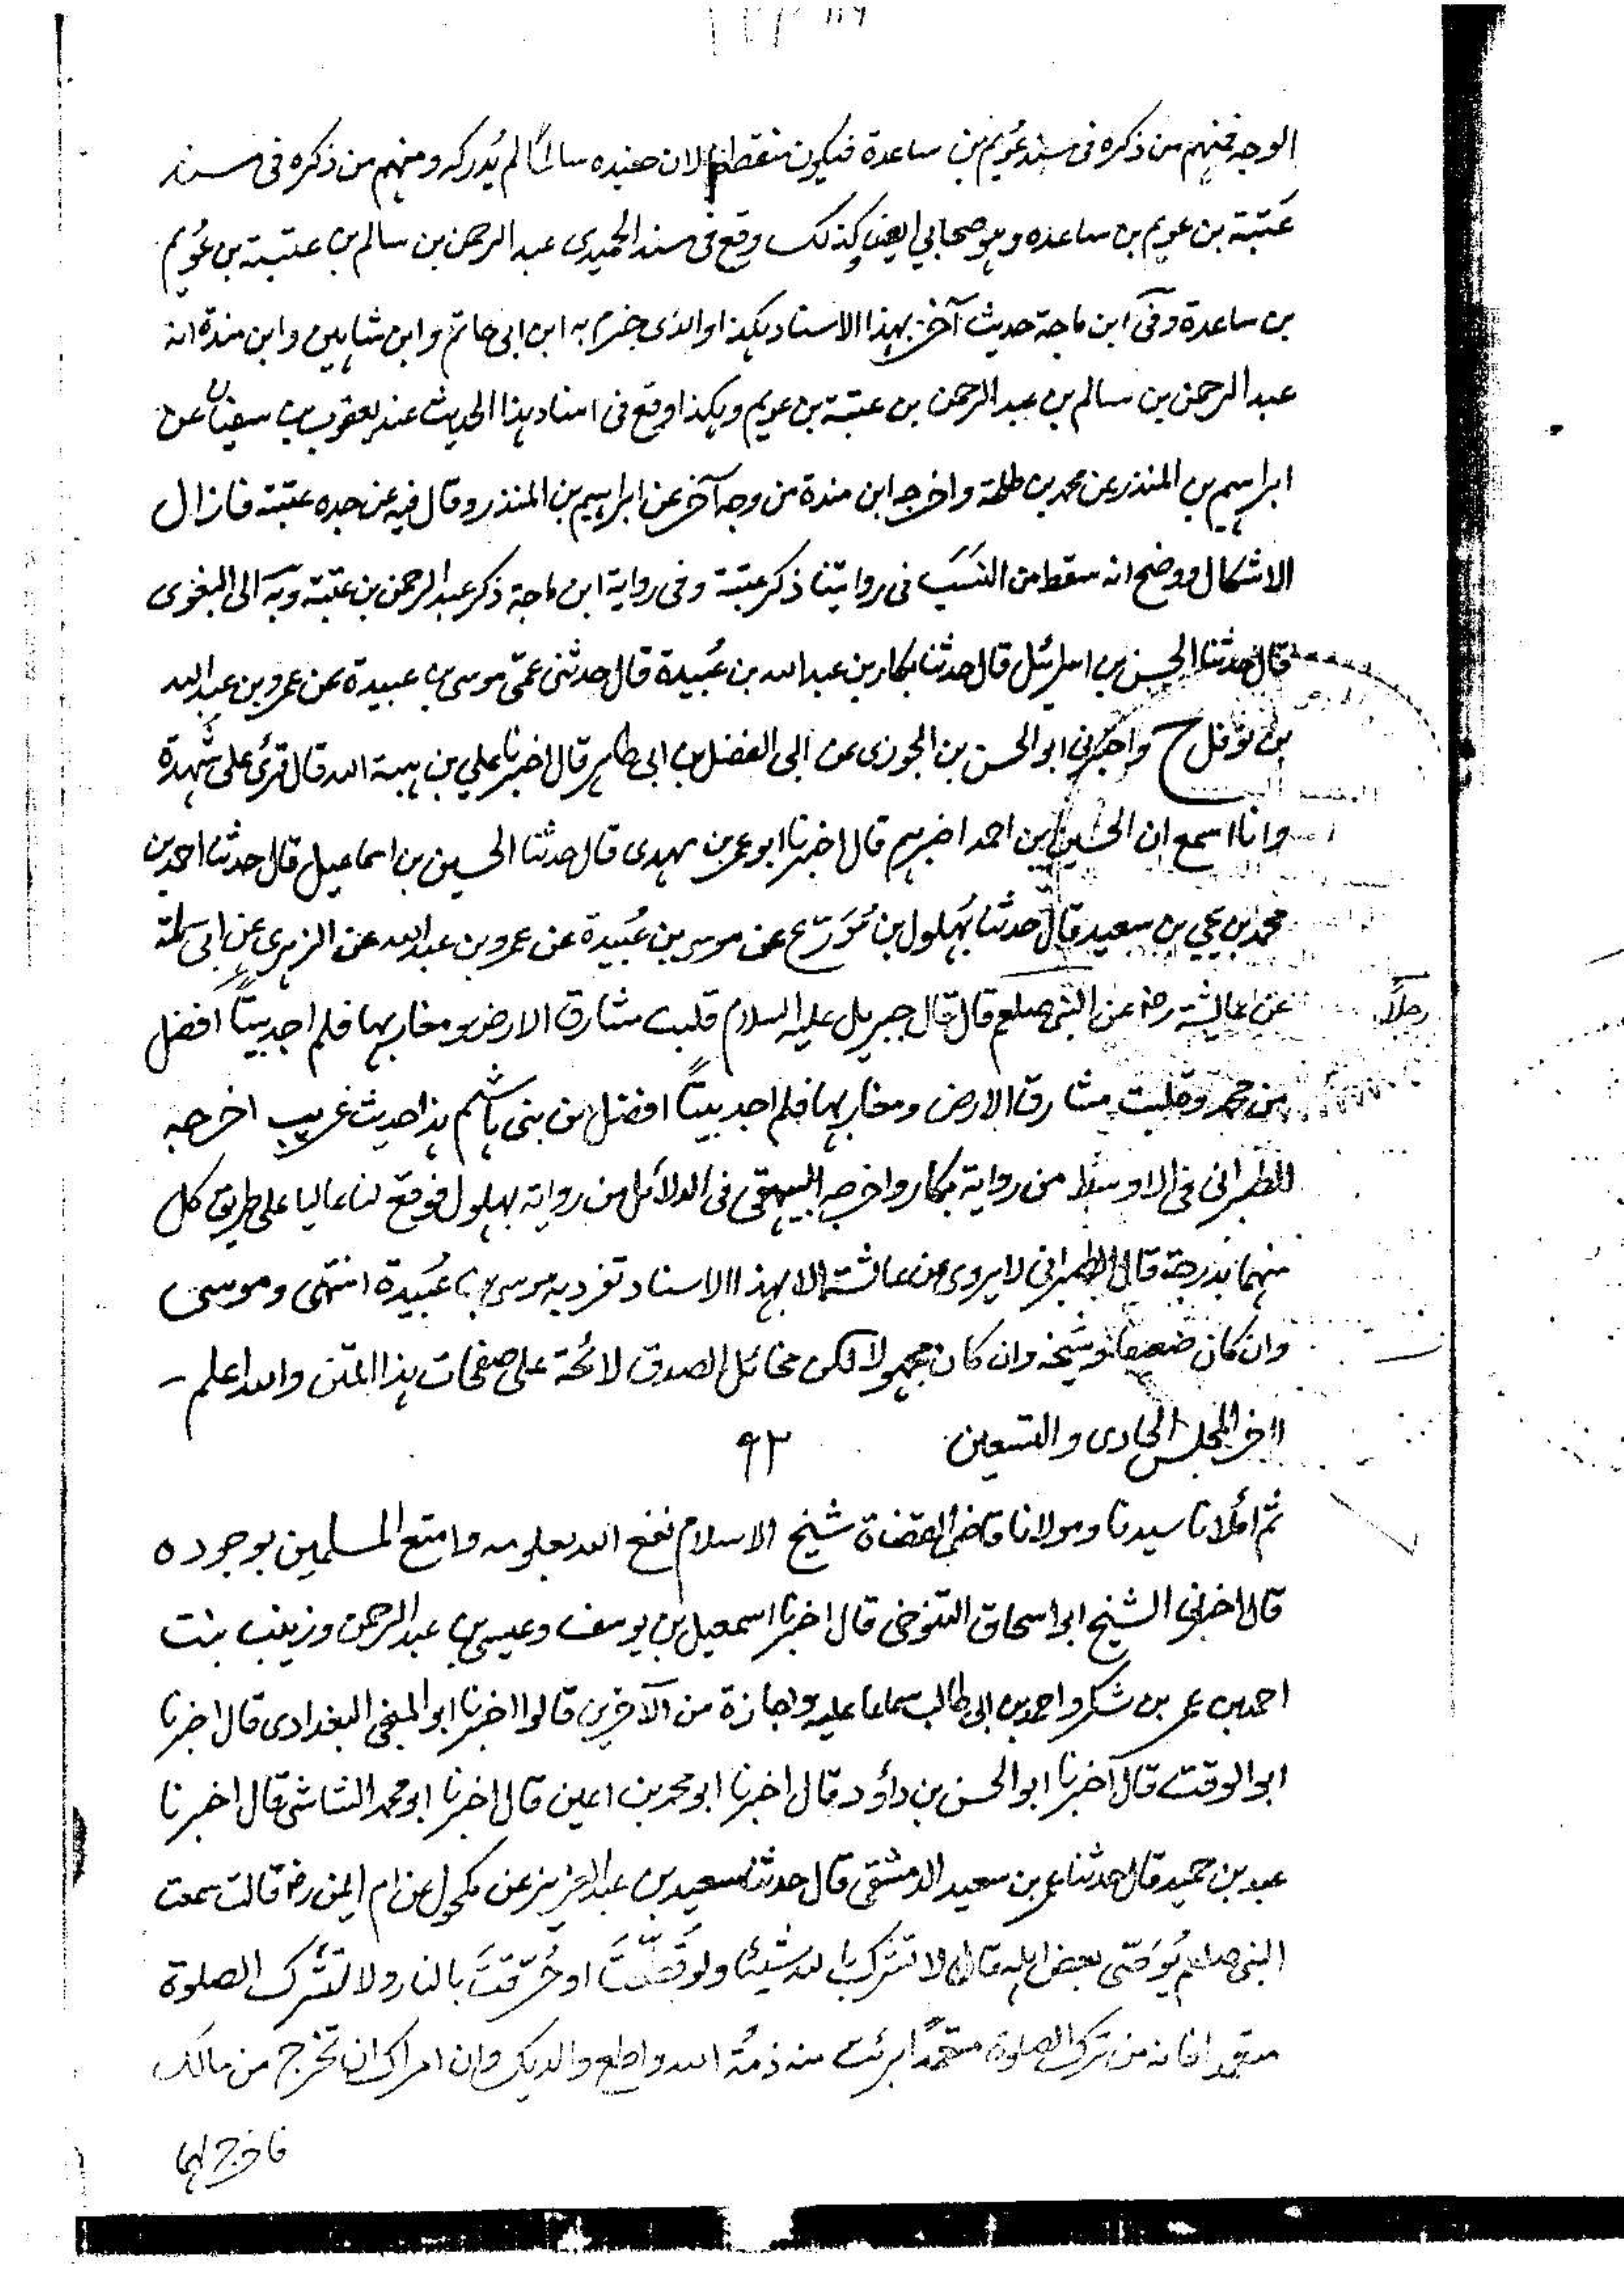 الوجه فمنهم من ذكره فى مسند عُويم بن ساعدة فيكون منقطعا لان حفيده سالمًا لم يُدركه ومنهم من ذكره فى مسند
عُتبَة بن عويم بن ساعده وهو صحابي ايضا وكذلك وقع فى مسند الحميدى عبد الرحمن بن سالم بن عتبة بن عُويم
بن ساعدة وفى ابن ماجة حديث آخر بهذا الاسناد هكذا والذى جزم به ابن ابى حاتم وابن شاهين وابن مندة انه
عبد الرحمن بن سالم بن عبد الرحمن بن عتبة بن عويم وهكذا وقع فى اسناد هذا الحديث عند يعقوب بن سفيان عن
ابراهيم بن المنذر عن محمد بن طلحة واخرجه ابن مندة من وجه آخر عن ابراهيم بن المنذر وقال فيه عن جده عتبة فازال
الاشكال ووضح انه سقط من النسَب فى روايتنا ذكر عتبة وفى رواية ابن ماجة ذكر عبد الرحمن بن عتبة وبَه الى البغوى
قال حدثنا الحسن بن اسرائيل قال حدثنا بكار بن عبد الله بن عُبيدة قال حدثنى عمّى موسى بن عبيدة عن عمرو بن عبد الله
بن نوفل ح واخبرنى ابو الحسن بن الجوزى عن ابى الفضل بن ابى طاهر قال اخبرنا علي بن هبة الله قال قرئ على شُهدة
وانا اسمع ان الحسين بن احمد اخبرهم قال اخبرنا ابو عمر بن مهدى قال حدثنا الحسين بن اسماعيل قال حدثنا احمد بن
محمد بن يحيى بن سعيد قال حدثنا بُهلول بن مُوَرّع عن موسى بن عُبيدة عن عمرو بن عبد الله عن الزهرى عن ابى سلمة
عن عائشة رضـ عن النبى صلعم قال قال جبريل عليه السلام قلبت مشارق الارض ومغاربها فلم اجد بيتًا افضل
رجلاً
من محمد وقلبت مشارق الارض ومغاربها فلم اجد بيتًا افضل من بنى هاشم هذا حديث غريب اخرجه
الطبرانى فى الاوسط من رواية بكار واخرجه البيهقى فى الدلائل من رواية بهلول فوقع لنا عاليا على طريق كل
منهما بدرجة قال الطبرانى لا يروى عن عائشة الا بهذا الاسناد تفرد به موسى بن عُبَيدة انتهى وموسى
وان كان ضعيفا وشيخه وان كان مجهولا لكن مخائل الصدق لائحة على صفحات هذا المتن والله اعلم
آخر المجلس الحادى والتسعين ٩٢
ثم أملانا سيدنا ومولانا قاضى القضاة شيخ الاسلام نفع الله بعلومه وامتع المسلمين بوجوده
قال اخبرنى الشيخ ابو اسحاق التنوخى قال اخبرنا اسمعيل بن يوسف وعيسى بن عبد الرحمن وزينب بنت
احمد بن عمر بن شكر واحمد بن ابى طالب سماعا عليه واجازة من الآخرين قالوا اخبرنا ابو المنجى البغدادى قال اخبرنا
ابو الوقت قال اخبرنا ابو الحسن بن داؤد قال اخبرنا ابو محمد بن اعين قال اخبرنا ابو محمد الشاشى قال اخبرنا
عبد بن حميد قال حدثنا عمر بن سعيد الدمشقى قال حدثنا سعيد بن عبد العزيز عن مكحول عن ام ايمن رضـ قالت سمعت
النبى صلعم يُوصى بعض اهله قال لا تشرك بالله شيئا ولو قُطّعتَ او حُرّقتَ بالنار ولا تترك الصلوة
متعمدا فانه من ترك الصلوة متعمّدًا برئت منه ذمّة الله واطع والديك وان امراك ان تخرج من مالك
فاخرج لهما